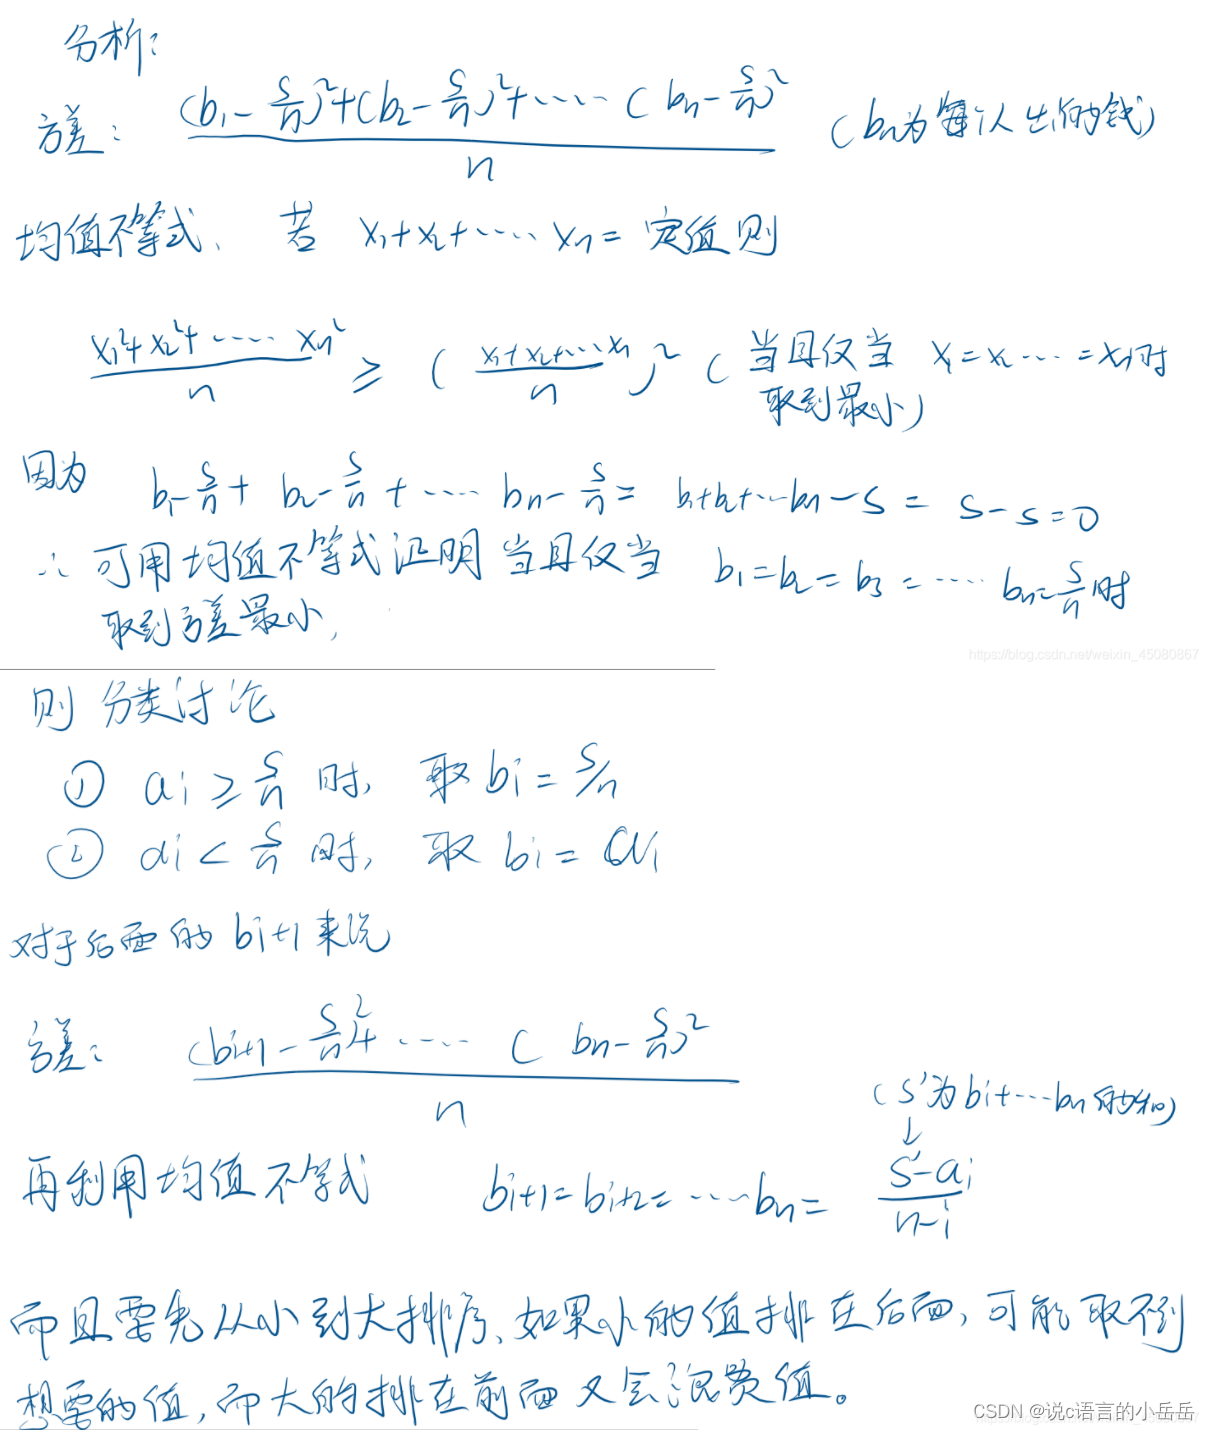 分析:
方差: ((b₁-s/n)²+(b₂-s/n)²+…… (bn-s/n)²)/n (bn为每人出的钱)
均值不等式、若 x₁+x₂+……xn= 定值则
(x₁²+x₂²+……xn²)/n ≥ ((x₁+x₂+…xn)/n)² (当且仅当 x₁=x₂……=xn时
取到最小)
因为 b₁-s/n+ b₂-s/n+…… bn-s/n= b₁+b₂+…bn-s = s-s=0
∴ 可用均值不等式证明当且仅当 b₁=b₂=b₃=……bn=s/n时
取到方差最小,
https://blog.csdn.net/weixin_45080867
则分类讨论
① ai≥s/n 时, 取bi=s/n
② ai<s/n 时, 取bi=ai
对于后面的bi+1来说
方差: ((bi+1-s/n)²+…… (bn-s/n)²)/n
(s'为bi+…bn的和)
↓
再利用均值不等式 bi+1=bi+2=……bn= (s'-ai)/(n-i)
而且要先从小到大排序、如果小的值排在后面,可能取不到
想要的值,而大的排在前面又会浪费值。
CSDN @说c语言的小岳岳